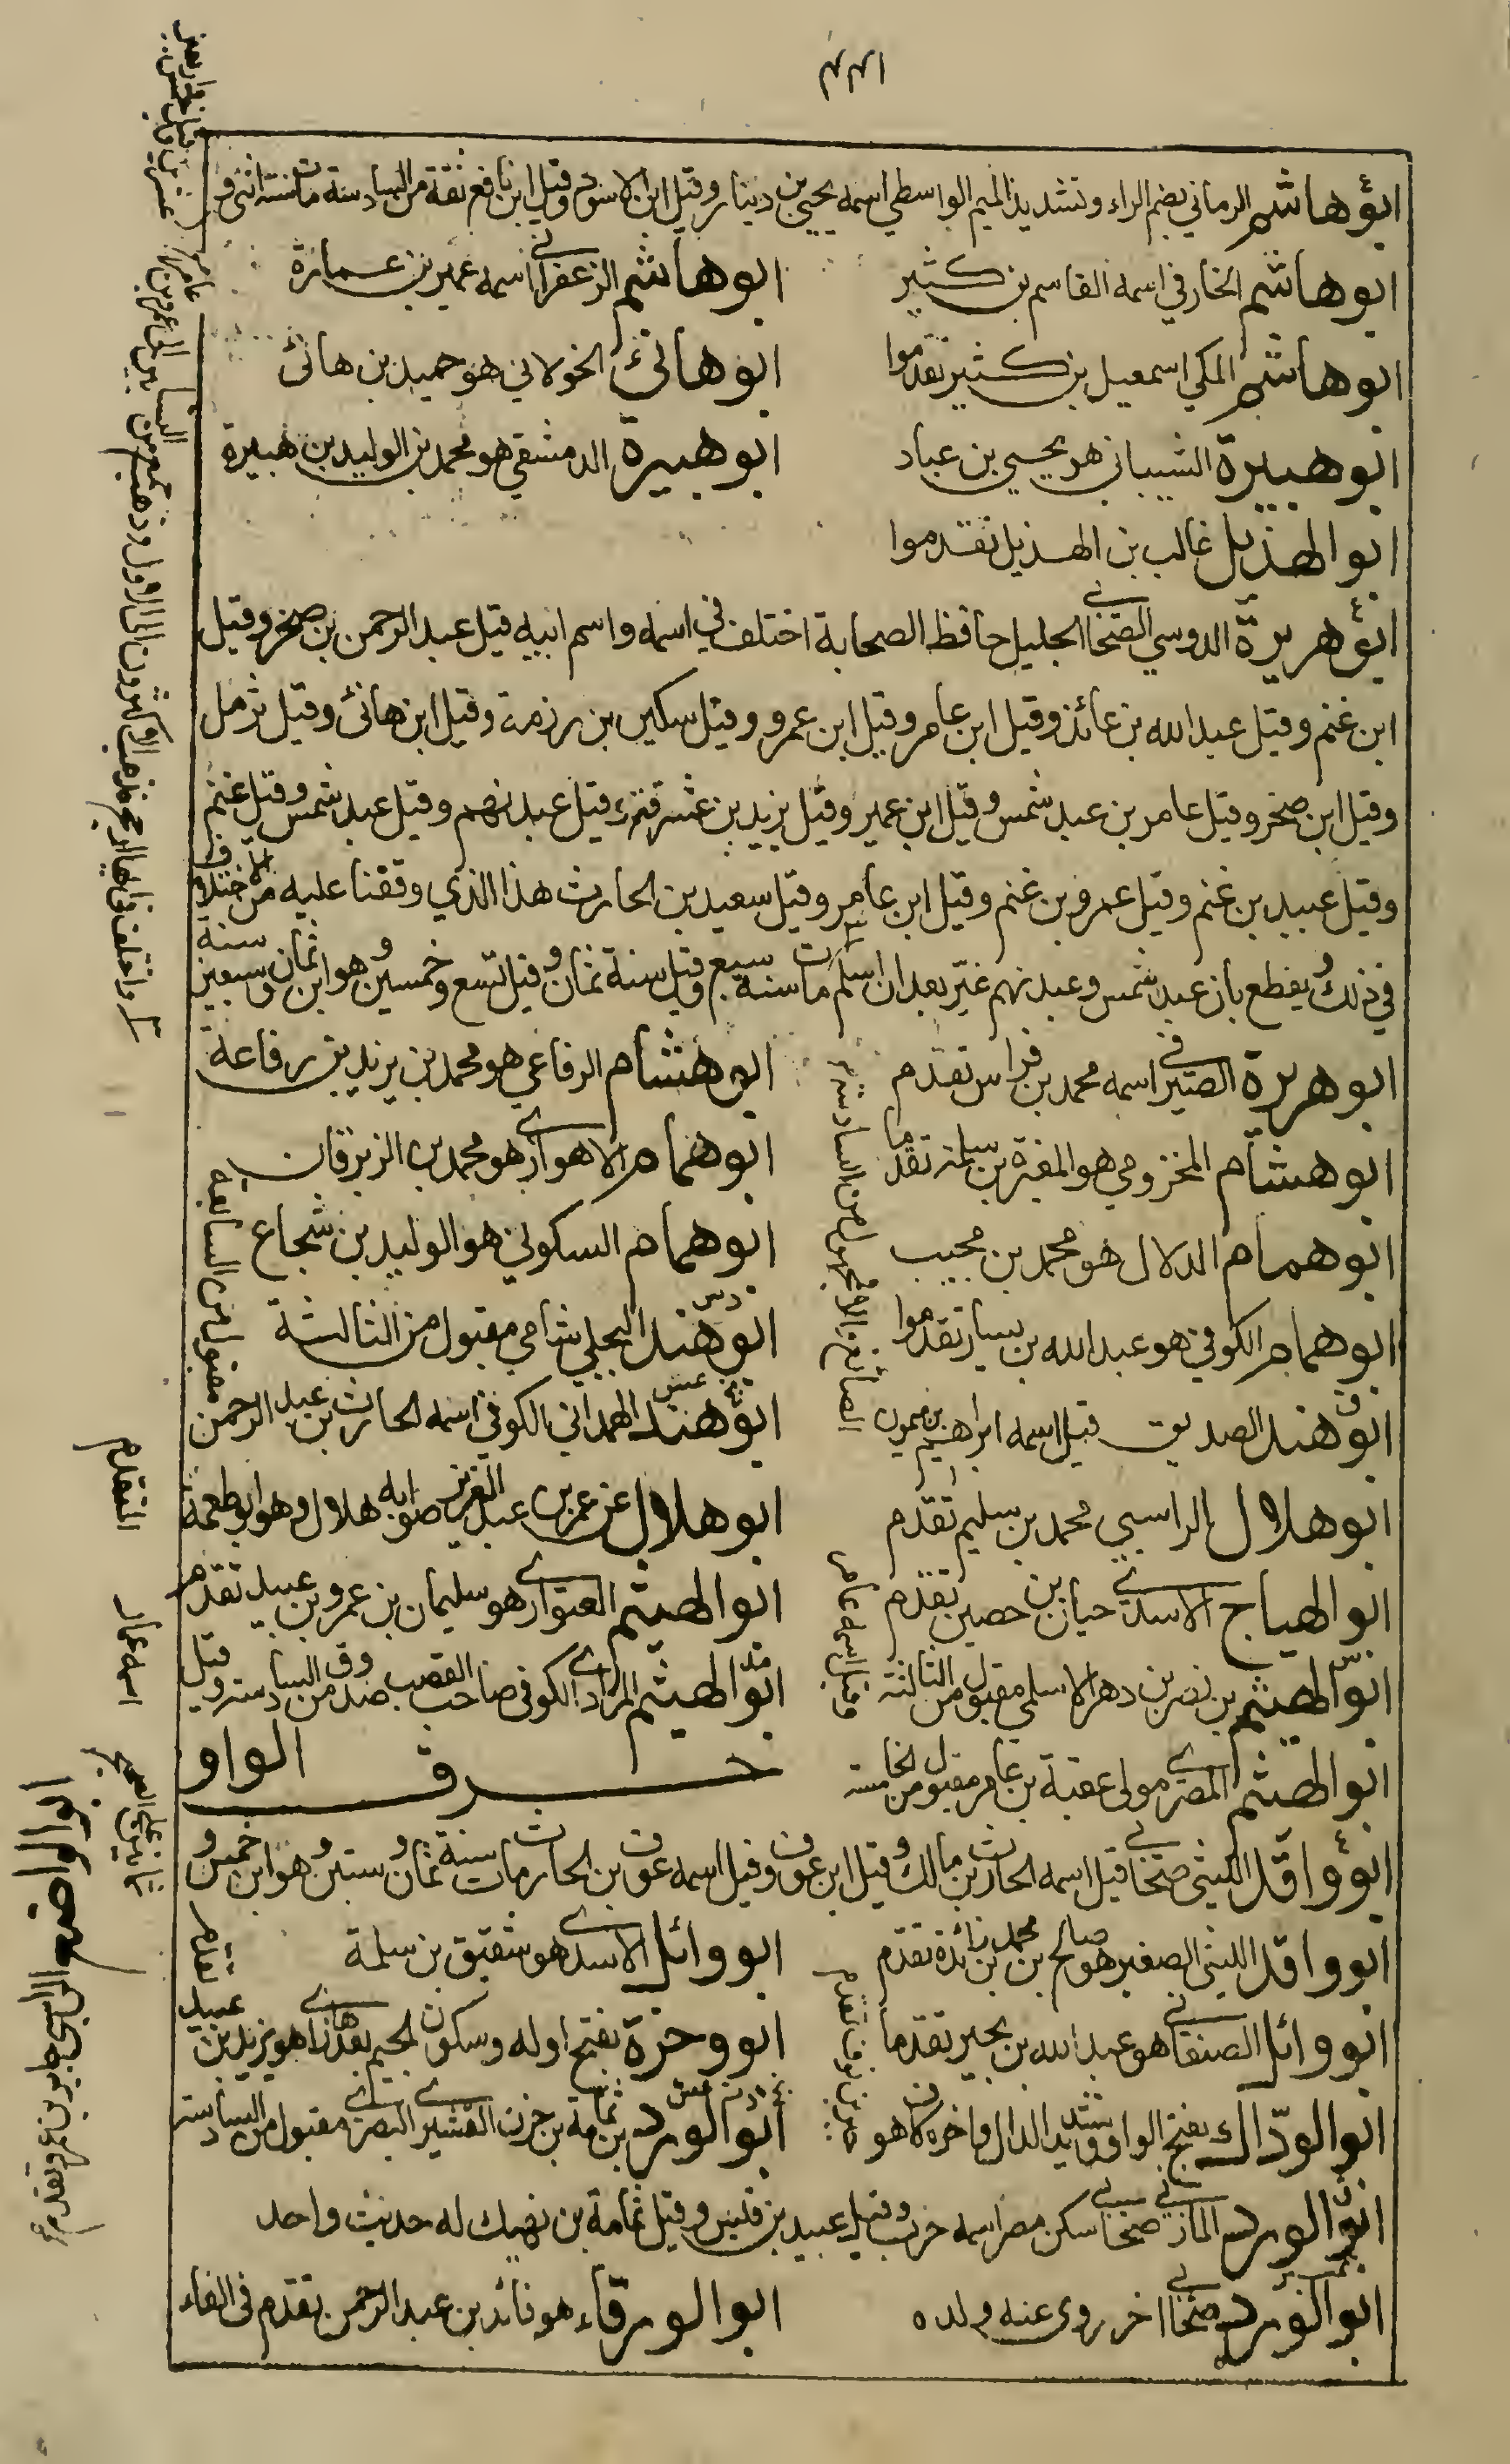 ابو هاشم الرماني بضم الراء وتشديد الميم الواسطي اسمه يحيى بن دينار وقيل ابن الاسود وقيل ابن نافع ثقة من السادسة مات سنة اثنتين و
عشرين وقيل خمس واربعين
ابو هاشم الخارفي اسمه القاسم بن كثير
ابو هاشم الزعفراني اسمه عمير بن عمارة
ابو هاشم المكي اسمعيل بن كثير تقدموا
ابو هانئ الخولاني هو حميد بن هانئ
ابو هبيرة الشيباني هو يحيى بن عباد
ابو هبيرة الدمشقي هو محمد بن الوليد بن هبيرة
ابو الهذيل غالب بن الهذيل تقدموا
ابو هريرة الدوسي الصحابي الجليل حافظ الصحابة اختلف في اسمه واسم ابيه قيل عبد الرحمن بن صخر وقيل
ابن غنم وقيل عبد الله بن عائذ وقيل ابن عامر وقيل ابن عمرو وقيل سكين بن رزمة وقيل ابن هانئ وقيل ثرمل
وقيل ابن صخر وقيل عامر بن عبد شمس وقيل ابن عمير وقيل يزيد بن عشرقة وقيل عبد نهم وقيل عبد شمس وقيل غنم
وقيل عبيد بن غنم وقيل عمرو بن غنم وقيل ابن عامر وقيل سعيد بن الحارث هذا الذي وقفنا عليه من الاختلاف
في ذلك ويقطع بان عبد شمس وعبد نهم غير بعد ان اسلم مات سنة سبع وقيل سنة ثمان وقيل تسع وخمسين وهو ابن ثمان وسبعين سنة
ابو هريرة الصيرفي اسمه محمد بن فراس تقدم
ابو هشام الرفاعي هو محمد بن يزيد بن رفاعة
ابو هشام المخزومي هو المغيرة بن سلمة تقدما
ابو همام الاهوازي هو محمد بن الزبرقان
ابو همام الدلال هو محمد بن محبب
ابو همام السكوني هو الوليد بن شجاع
ابو همام الكوفي هو عبد الله بن يسار تقدموا
ابو هند البجلي شامي مقبول من الثالثة
ابو هند الصديق قيل اسمه ابراهيم بن ميمون
الصائغ والا فمجهول من السادسة
ابو هند الهمداني الكوفي اسمه الحارث بن عبد الرحمن
مقبول من السابعة
ابو هلال الراسبي محمد بن سليم تقدم
ابو هلال عن عمر بن عبد العزيز صوابه هلال وهو ابو طعمة
المتقدم
ابو الهياج الاسدي حيان بن حصين تقدم
ابو الهيثم العتواري هو سليمان بن عمرو بن عبيد تقدم
ابو الهيثم بن نصر بن دهر الاسلمي مقبول من الثالثة
وقيل اسمه عامر
ابو الهيثم المرادي الكوفي صاحب القصب صدوق من السادسة وقيل
اسمه عمار
ابو الهيثم المصري مولى عقبة بن عامر مقبول من الخامسة
حرف الواو
ابو واقد الليثي صحابي قيل اسمه الحارث بن مالك وقيل ابن عوف وقيل اسمه عوف بن الحارث مات سنة ثمان وستين وهو ابن خمس و
ثمانين على الصحيح
ابو واقد الليثي الصغير هو صالح بن محمد بن زائدة تقدم
ابو وائل الاسدي هو شقيق بن سلمة
ابو وائل الصنعاني هو عبد الله بن بحير تقدما
ابو وجزة بفتح اوله وسكون الجيم بعدها زاي هو يزيد بن عبيد
تقدم
ابو الوداك بفتح الواو وتشديد الدال واخره كاف هو
جبر بن نوف تقدم
ابو الورد بن ثمامة بن حزن القشيري البصري مقبول من السادسة
ابو الوازع الراسبي جابر بن عمرو تقدم
ابو الورد المازني صحابي سكن مصر اسمه حرب وقيل عبيد بن قيس وقيل ثمامة بن نهيك له حديث واحد
ابو الورد صحابي اخر روى عنه ولده
ابو الورقاء هو فائد بن عبد الرحمن تقدم في الفاء